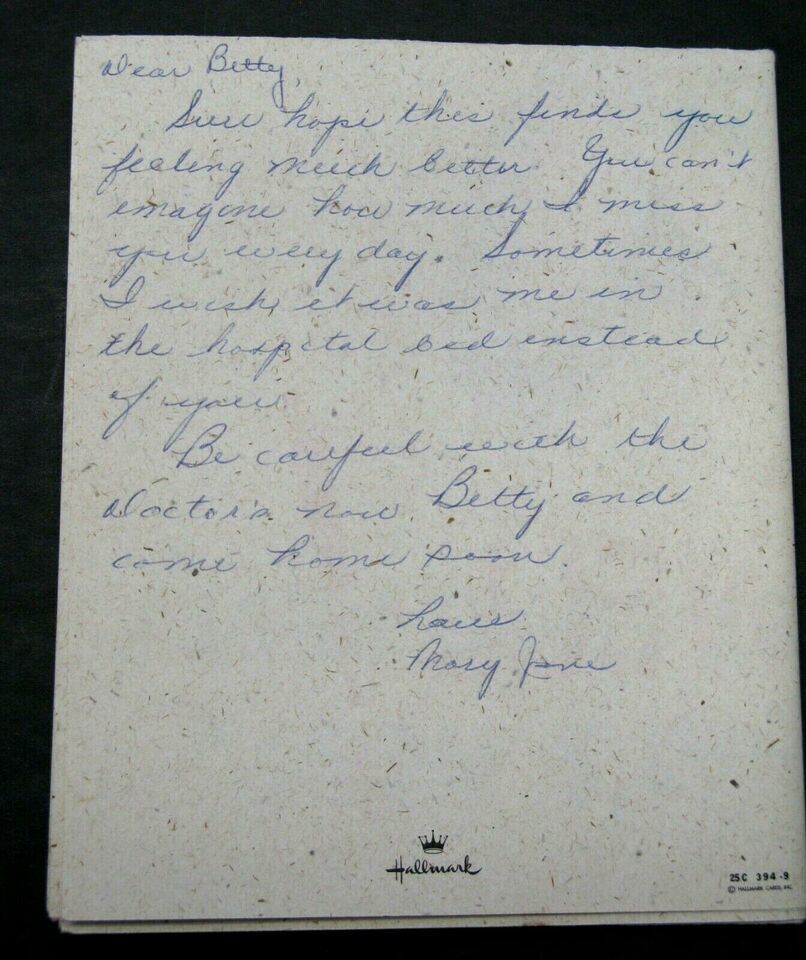 Dear Betty,
Sure hope this finds you
feeling much better. You can't
emagone how much I miss
you every day. Sometimes
I wish it was me in
the hospital bed instead
of you.
Be careful with the
Doctor's now Betty and
come home soon.
Love
Mary Jane
Hallmark
25C 394-9
© HALLMARK CARDS, INC.